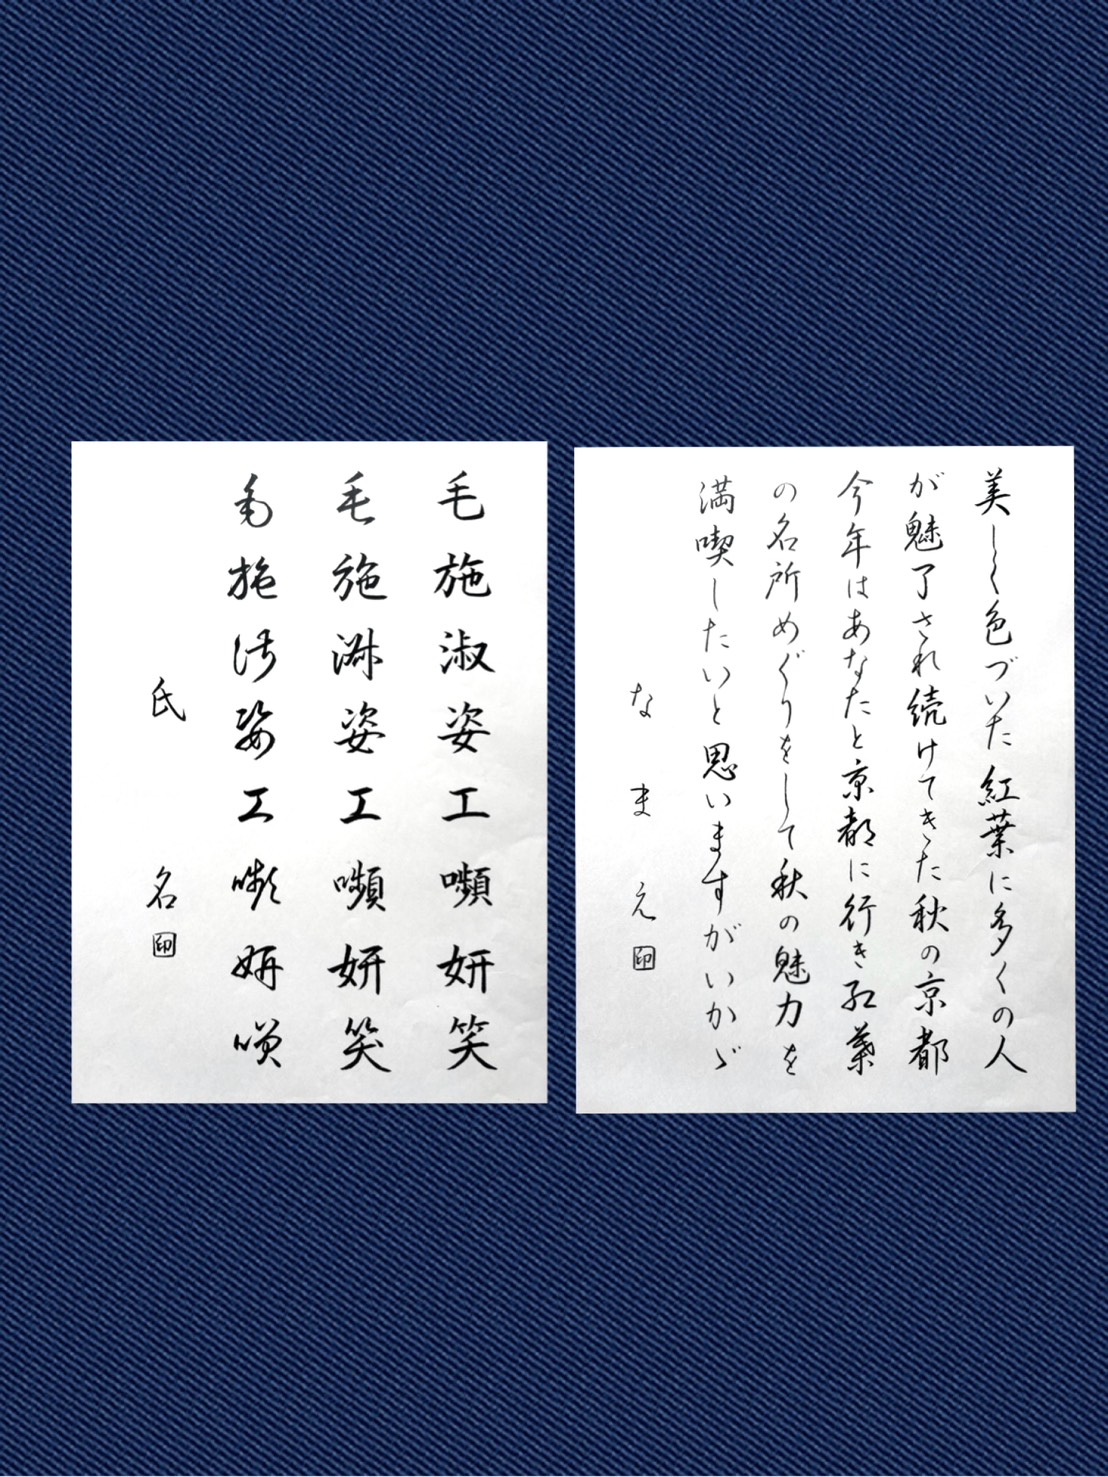 美しく色づいた紅葉に多くの人
が魅了され続けてきた秋の京都
今年はあなたと京都に行き紅葉
の名所めぐりをして秋の魅力を
満喫したいと思いますがいかゞ
なまえ 印
毛施淑姿工嚬妍笑
毛施淑姿工嚬妍笑
毛施淑姿工嚬妍笑
氏名 印